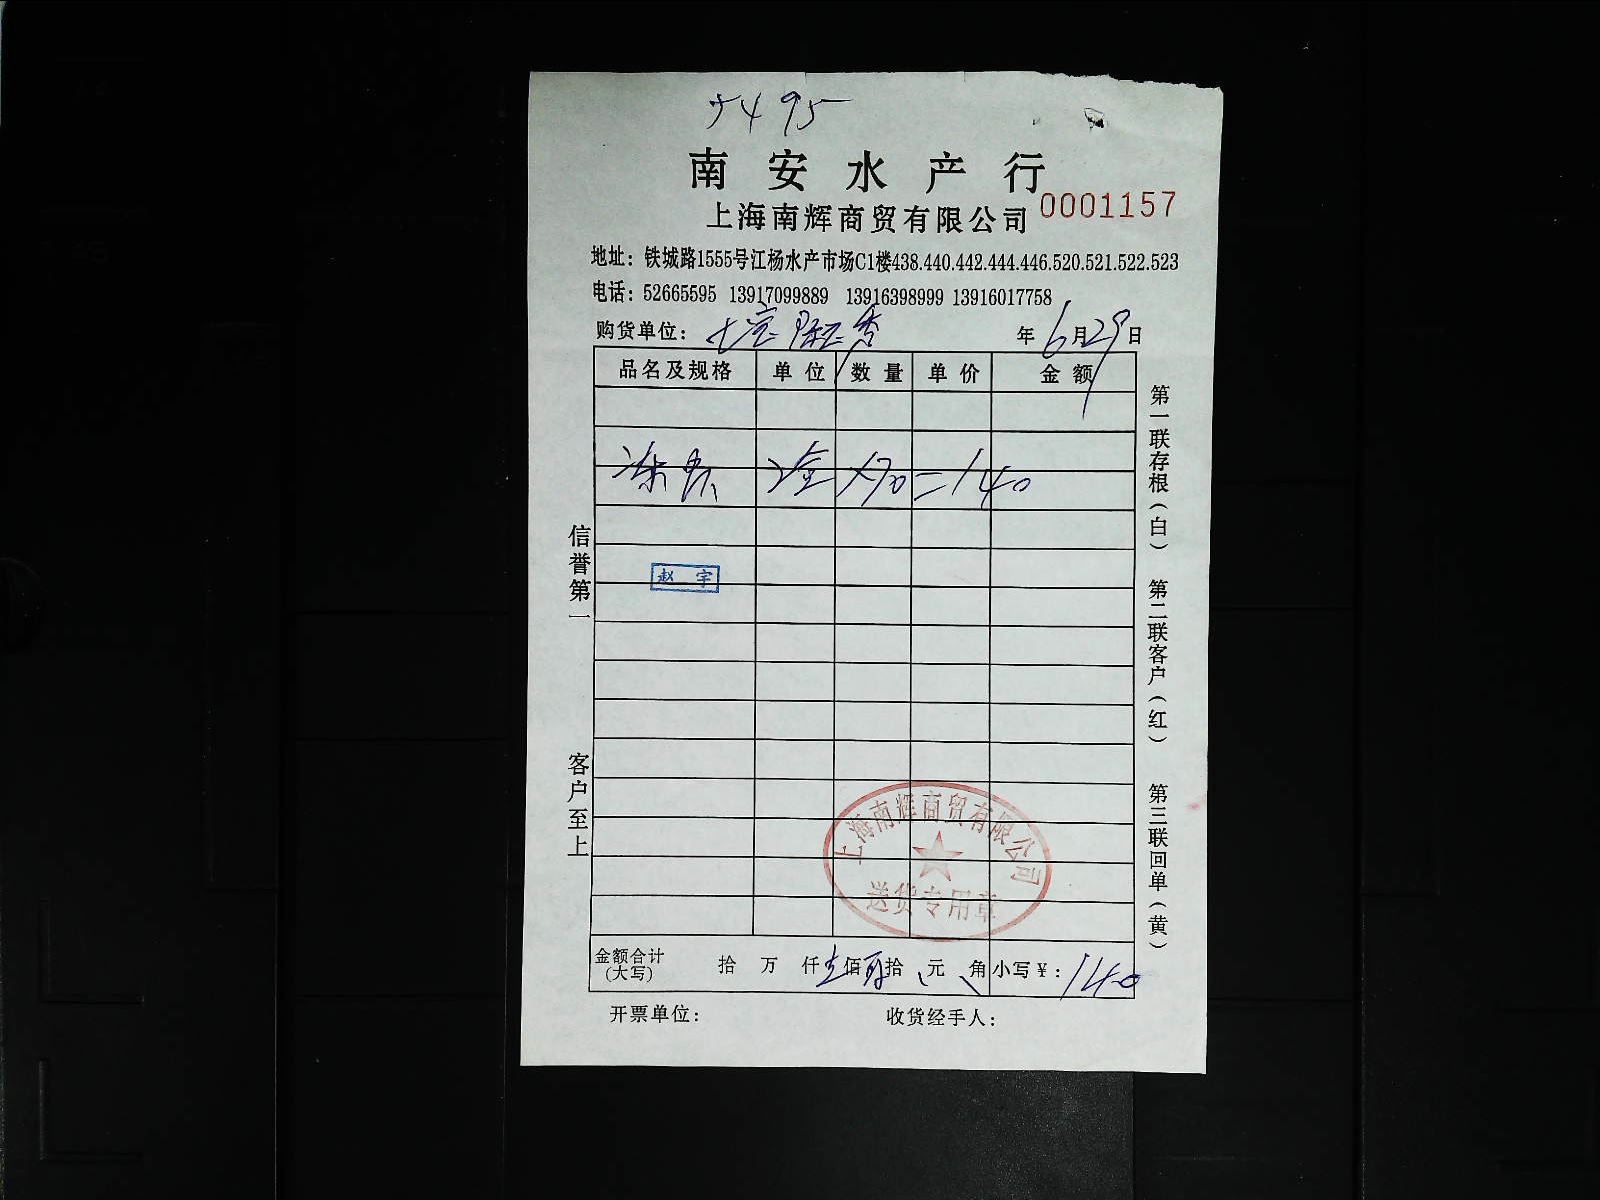 南安水产行
上海南辉商贸有限公司 0001157
地址：铁城路1555号江杨水产市场C1楼438.440.442.444.446.520.521.522.523
电话：52665595 13917099889 13916398999 13916017758
购货单位： 七宝 年6月29日
品名及规格 单位 数量 单价 金额
冻 2盒 ×70 =140
赵宇
信誉第一
客户至上
第一联存根（白） 第二联客户（红） 第三联回单（黄）
上海南辉商贸有限公司
送货专用章
金额合计（大写） 拾 万 仟 佰 拾 元 角 小写￥：140
开票单位： 收货经手人：